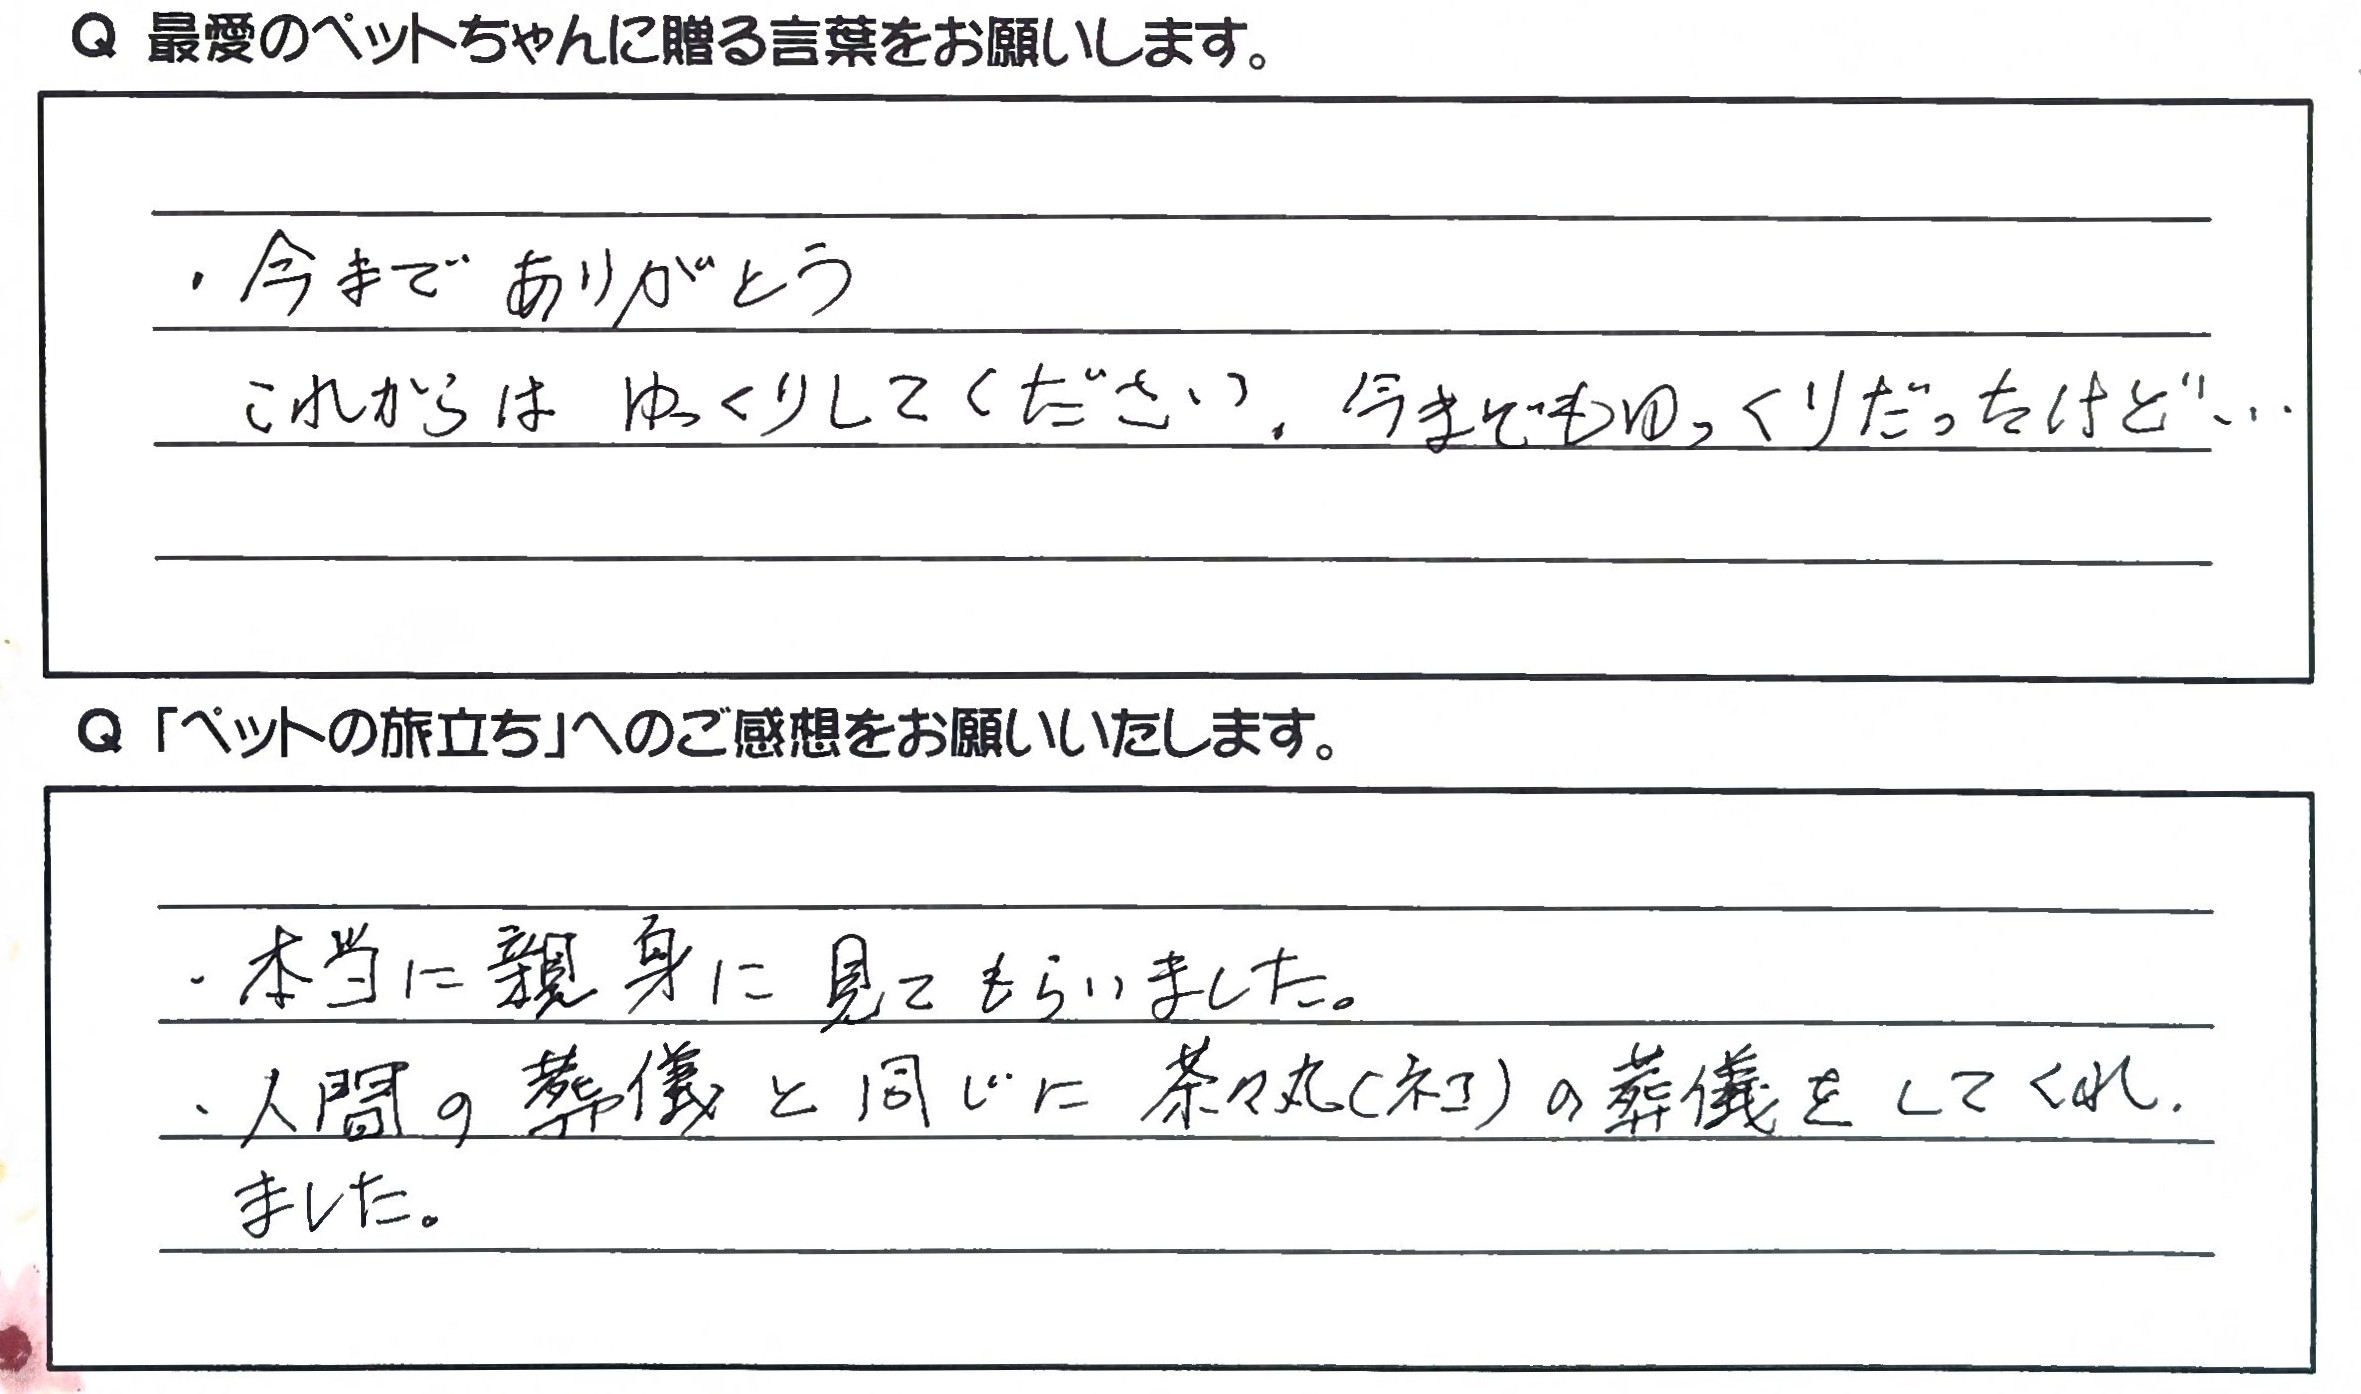 Q 最愛のペットちゃんに贈る言葉をお願いします。
・今まで ありがとう
これからは ゆっくりしてください。今まででもゆっくりだったけど…
Q 「ペットの旅立ち」へのご感想をお願いいたします。
・本当に親身に見てもらいました。
・人間の葬儀と同じに茶々丸(ネコ)の葬儀をしてくれ
ました。